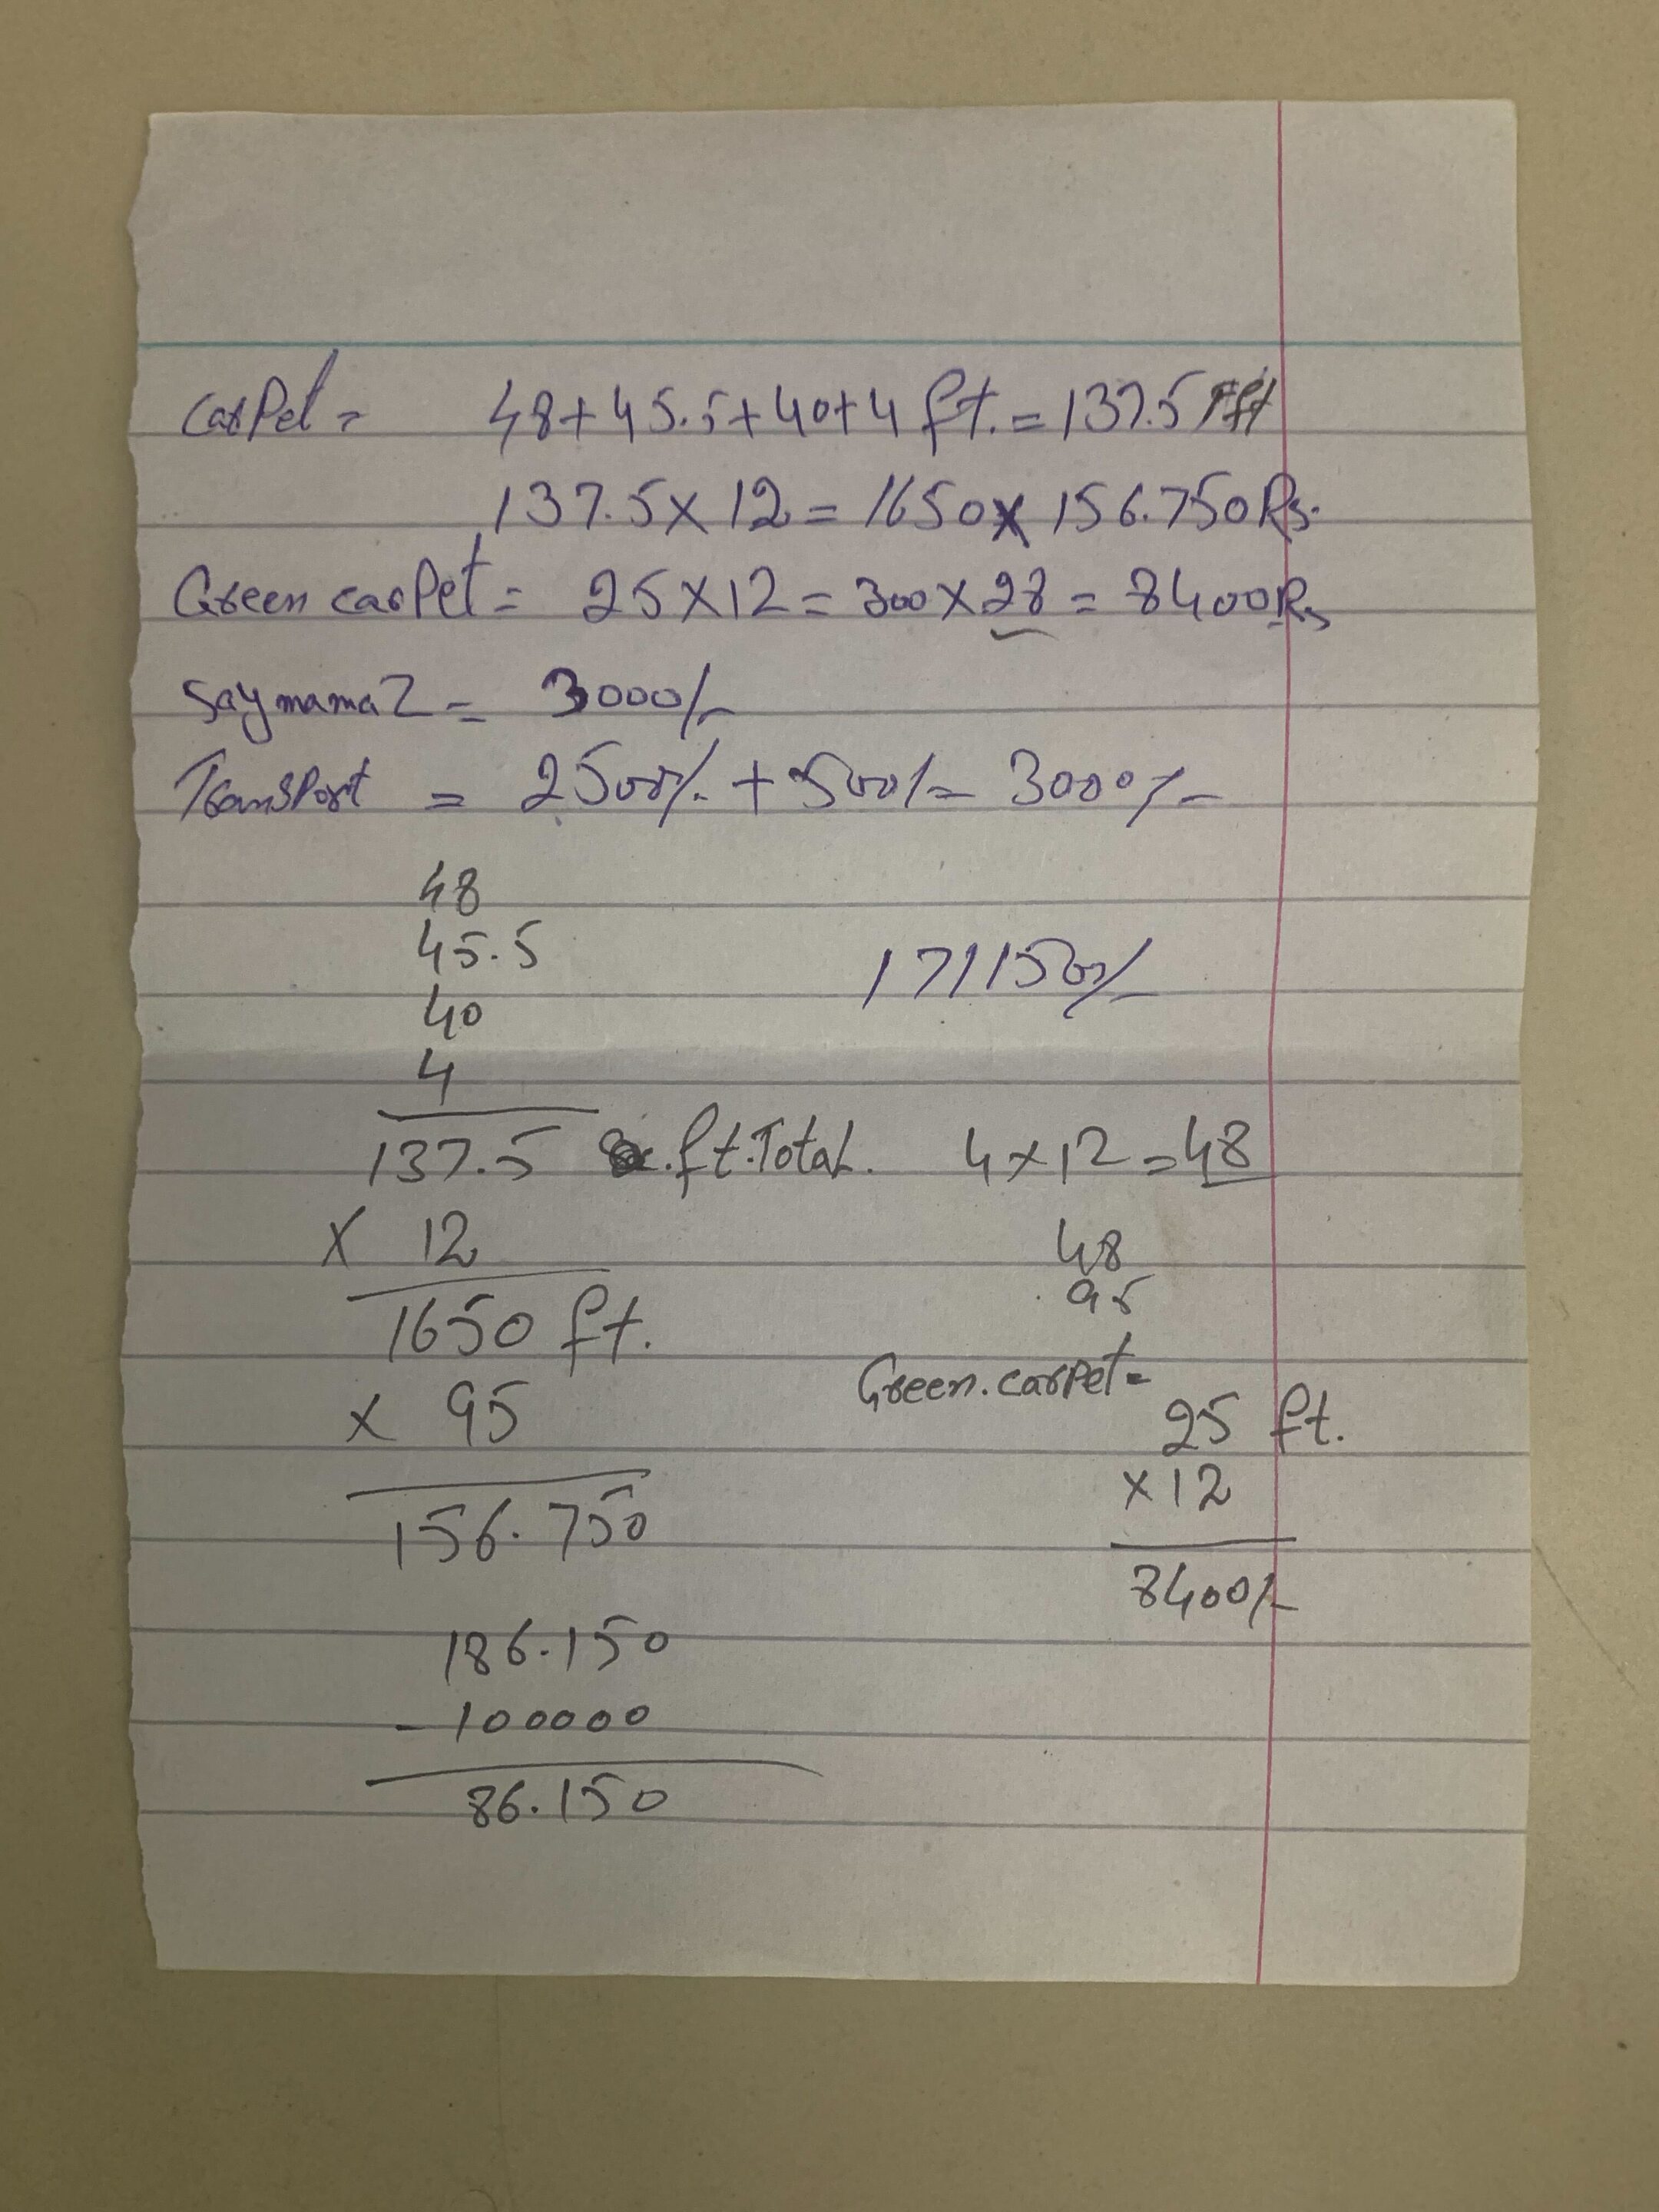 Carpet = 48+45.5+40+4 ft. = 137.5 ft
137.5 x 12 = 1650 x 156.750 Rs.
Green carpet = 25 x 12 = 300 x 28 = 8400 Rs
Saymamaz = 3000/-
Transport = 2500/- + 500/- = 3000/-
48
45.5
40
4
171150/-
137.5 ft. Total.
x 12
1650 ft.
x 95
156.750
186.150
- 100000
86.150
4 x 12 = 48
48
95
Green. carpet =
25 ft.
x 12
8400/-